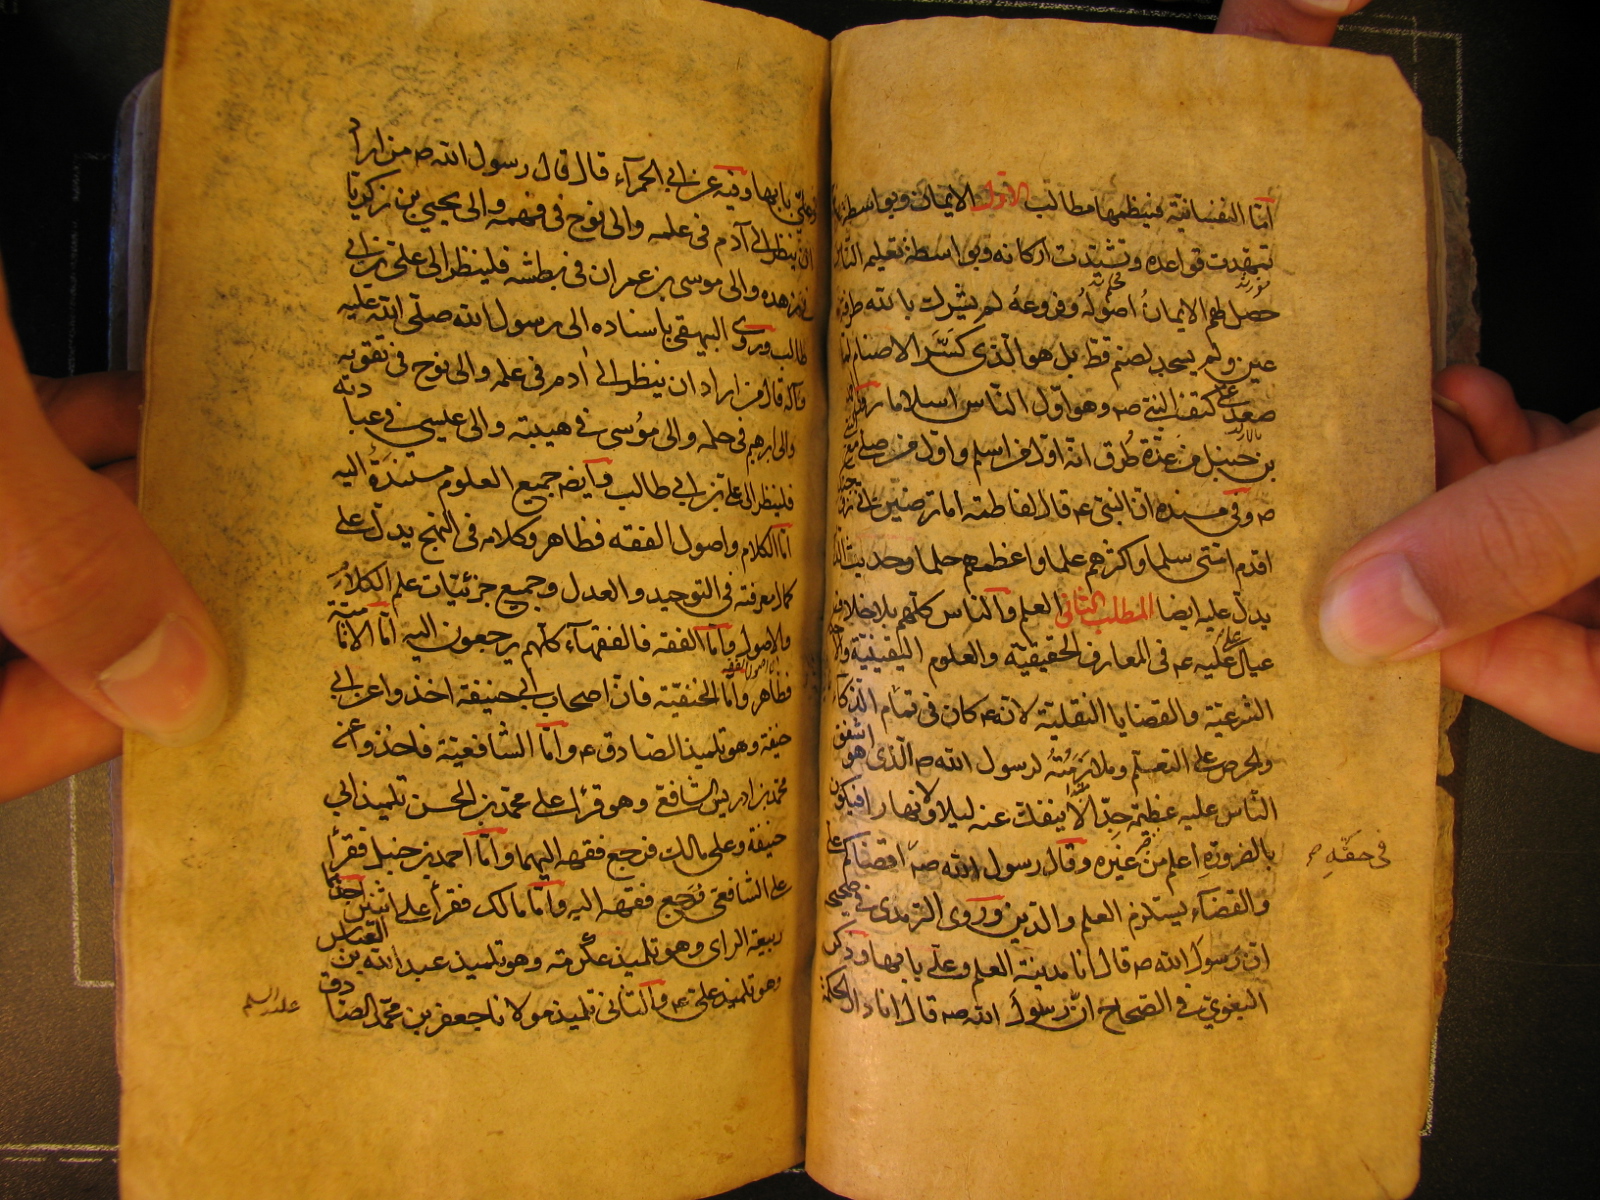 امّا النفسانية فينظمها مطالب الاول الايمان وبواسطته
تمهدت قواعده وتشيّدت اركانه وبواسطة تعليمه الناس
حصل لهم الايمان اصوله وفروعه لم يشرك بالله طرفة
عين ولم يسجد لصنم قط بل هو الّذي كسّر الاصنام لما
صعد على كتف النبي ص وهو اوّل النّاس اسلاما روى
بن حنبل من عدّة طُرق انّه اوّل من اسلم واوّل من صلى مع
ص وفي مسنده انّ النبي ع قال لفاطمه اما ترضين انى
اقدم امتى سلما واكثرهم علما واعظمهم حلما وحديث
يدلّ عليه ايضا المطلب الثاني العلم والناس كلّهم بلا خلاف
عيال عليه ع فى المعارف الحقيقيّه والعلوم اليقينيّة
الشرعيّة والقضايا النقلية لانه ع كان فى تمام الذكاء
والحرص على التعلم وملازمته لرسول الله ص الّذى هو اشفق
النّاس عليه عظيمه جدّا لا ينفك عنه ليلا ولا نهارا فيكون
بالضرورة اعلم من غيره وقال رسول الله ص فى حقّه اقضاكم على
والقضاء يستلزم العلم والدين وروى الترمذى فى صحيحه
انّ رسول الله ص قال انا مدينة العلم وعلى بابها وذكر
البغوي في الصحاح انّ رسول الله ص قال انا دار الحكمة
وعلىّ بابها وفيه عن ابى الحمراء قال قال رسول الله ص من اراد
ان ينظر الى آدم فى علمه والى نوح فى فهمه والى يحيى بن زكريا
فى زهده والى موسى بن عمران فى بطشه فلينظر الى على بن ابى
طالب وروى البيهقى باسناده الى رسول الله صلّى الله عليه
وآله قال من اراد ان ينظر الى آدم فى علمه والى نوح فى تقويه
والى ابرهيم فى حلمه والى موسى فى هيبته والى عيسى فى عبادته
فلينظر الى على بن ابى طالب وايضا جميع العلوم مستندة اليه
امّا الكلام واصول الفقه فظاهر وكلامه فى النهج يدلّ على
كمال معرفته فى التوحيد والعدل وجميع جزئيّات علم الكلام
والاصول وامّا الفقه فالفقهاء كلّهم يرجعون اليه امّا الاماميّة
فظاهر وامّا الحنفيّة فانّ اصحاب ابى حنيفة اخذوا عن ابى
حنيفة وهو تلميذ الصادق ع وامّا الشافعيّة فاخذوا عن
محمّد بن ادريس الشافعى وهو قرأ على محمّد بن الحسن تلميذ ابى
حنيفة وعلى مالك فرجع فقهه اليهما وامّا احمد بن حنبل فقرأ
على الشافعى فرجع فقهه اليه وامّا مالك فقرأ على اثنين احدهما
ربيعة الراى وهو تلميذ عكرمة وهو تلميذ عبدالله بن العباس
وهو تلميذ على ع والثانى تلميذ مولانا جعفر بن محمّد الصادق
عليه السلم